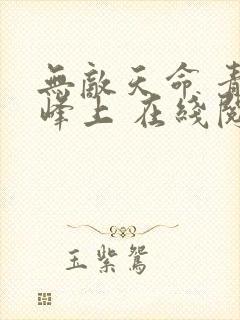 無敵天命 青
峰上 在綫閱
玉紫鴛